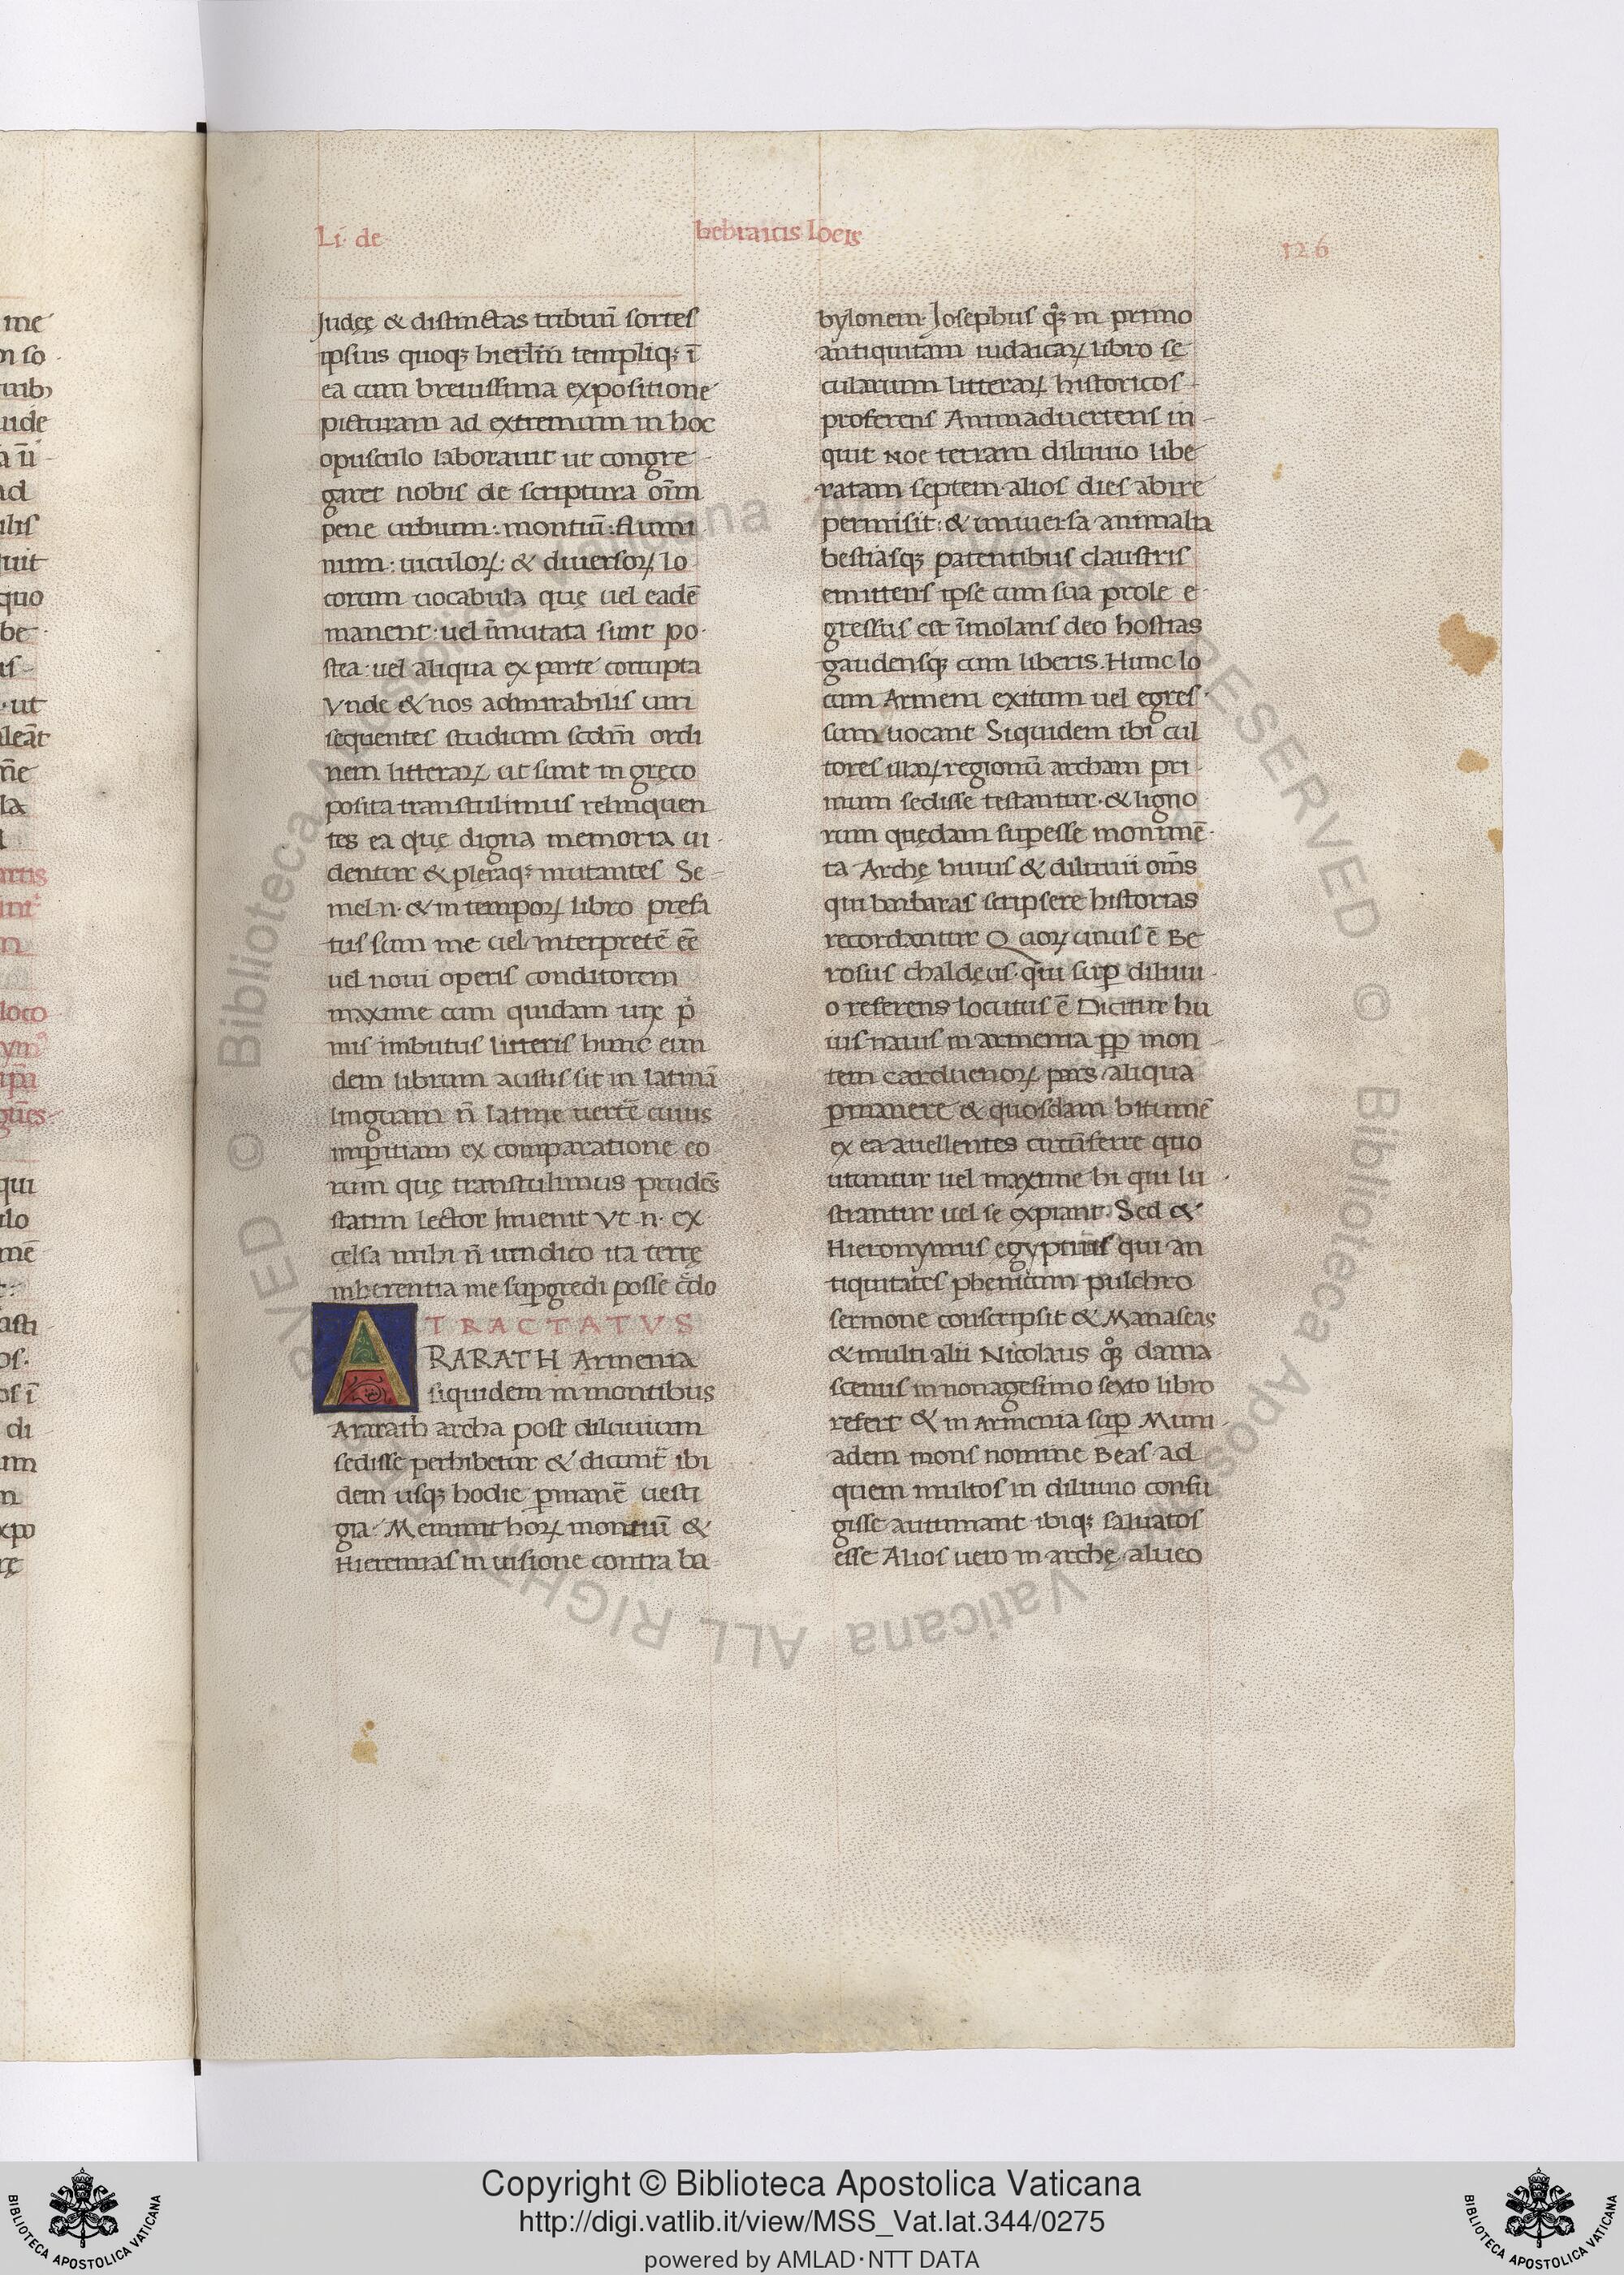 Li. de hebraicis locis 126
Judęę & distinctas tribuū sortes
ipsius quoqꝫ hierlm̄ templiqꝫ ī
ea cum breuissima expositione
picturam ad extremum in hoc
opusculo laborauit ut congre
garet nobis de scriptura om̄
pene urbium: montiū: flumi
num: uiculoꝝ: & diuersoꝝ lo
corum uocabula quę uel eadē
manent: uel īmutata sunt po
stea uel aliqua ex parte corrupta
Vnde & nos admirabilis uiri
sequentes studium scdm̄ ordi
nem litteraꝝ ut sunt in gręco
posita transtulimus relinquen
tes ea quę digna memoria ui
dentur & pleraqꝫ mutantes Se
mel .n. & in tempoꝝ libro prefa
tus sum me uel interpretē eē
uel noui operis conditorem
maxime cum quidam uix p̄
mis imbutus litteris hunc eun
dem librum ausus sit in latinā
linguam n̄ latine uertē cuius
imꝑitiam ex comparatione eo
rum quę transtulimus prudēs
statim lector inueniet Vt .n. ex
celsa mihi n̄ uendico ita terrę
inherentia me suꝑgredi posse c̄do
TRACTATVS
ARARATH Armenia
siquidem in montibus
Ararath archa post diluuium
sedisse perhibetur & dicunt̄ ibi
dem usqꝫ hodie ꝑmanē uesti
gia. Meminit hoꝝ montiū &
Hieremias in uisione contra ba
bylonem Josephus qͦꝫ in primo
antiquitatum iudaicaꝝ libro se
cularium litteraꝝ historicos
proferens Animaduertens in
quit Noe terram diluuio libe
ratam septem alios dies abire
permisit: & uniuersa animalia
bestiasqꝫ patentibus claustris
emittens ipse cum sua prole e
gressus est īmolans deo hostias
gaudensqꝫ cum liberis. Hunc lo
cum Armeni exitum uel egres
sum uocant Siquidem ibi cul
tores illaꝝ regionū archam pri
mum sedisse testantur. & ligno
rum quędam suꝑesse monimē
ta Archę huius & diluuii om̄s
qui barbaras scripsere historias
recordantur Quoꝝ unus ē Be
rosus chaldęus. qui suꝑ diluui
o referens locutus ē Dicitur hu
ius nauis in armenia ꝓp mon
tem carduenoꝝ pars aliqua
ꝑmanere & quosdam bitumē
ex ea auellentes circūferre quo
utuntur uel maxime hi qui lu
strantur uel se expiant. Sed &
Hieronymus egyptius qui an
tiquitates phenicum pulchro
sermone conscripsit & Manaseas
& multi alii Nicolaus qͦꝫ dama
scenus in nonagesimo sexto libro
refert & in Armenia suꝑ Muni
adem mons nomine Beas ad
quem multos in diluuio confu
gisse autumant ibiqꝫ saluatos
esse Alios uero in archę alueo
me
in so
uide
ad
ilis
quit
quo
be
is
ut
la
loco
qui
ulo
mē
di
um
expo
Copyright © Biblioteca Apostolica Vaticana
http://digi.vatlib.it/view/MSS_Vat.lat.344/0275
powered by AMLAD·NTT DATA
BIBLIOTECA APOSTOLICA VATICANA
BIBLIOTECA APOSTOLICA VATICANA
© Biblioteca Apostolica Vaticana ALL RIGHTS RESERVED © Biblioteca Apostolica Vaticana ALL RIGHTS RESERVED